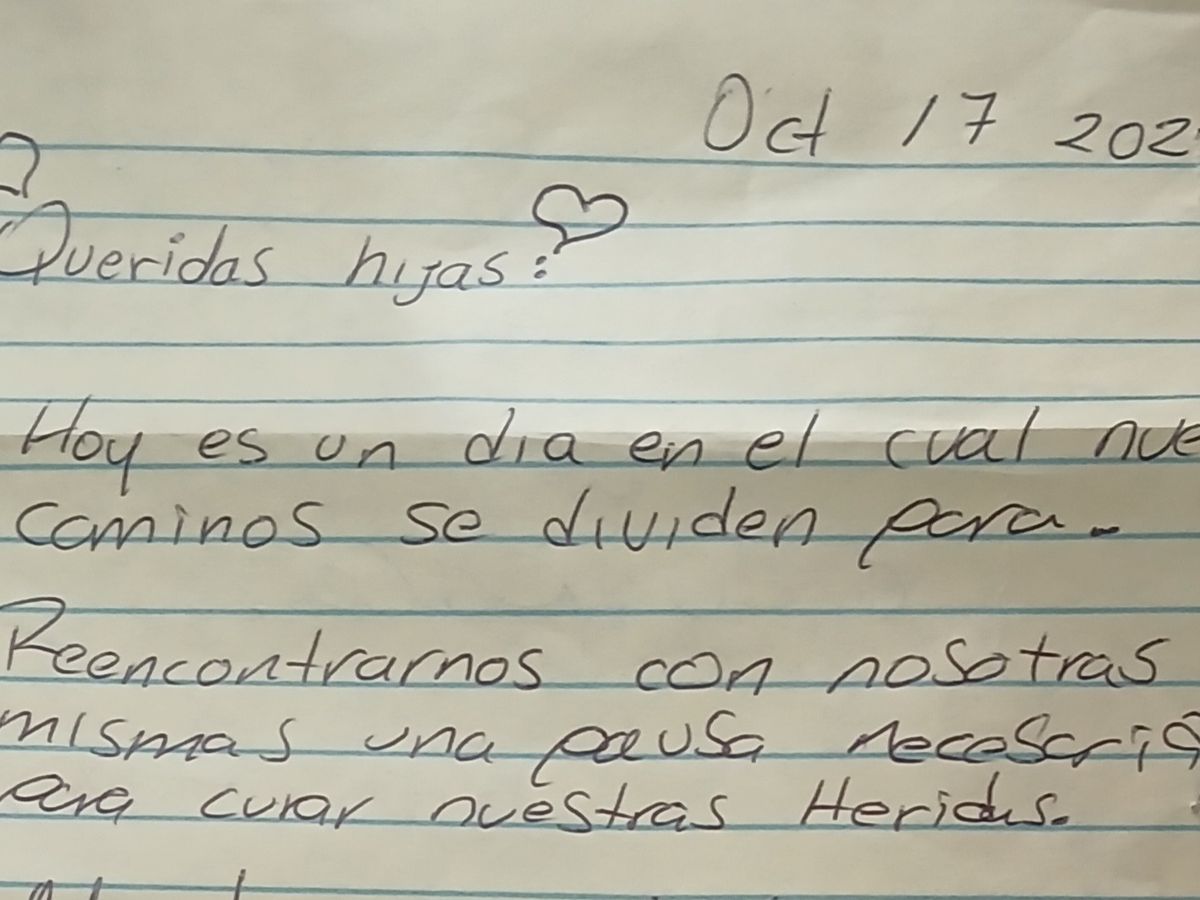 Oct 17 202
Queridas hijas:
Hoy es un dia en el cual nue
caminos se dividen para.
Reencontrarnos con nosotras
mismas una pausa necesaria
para curar nuestras Heridas.